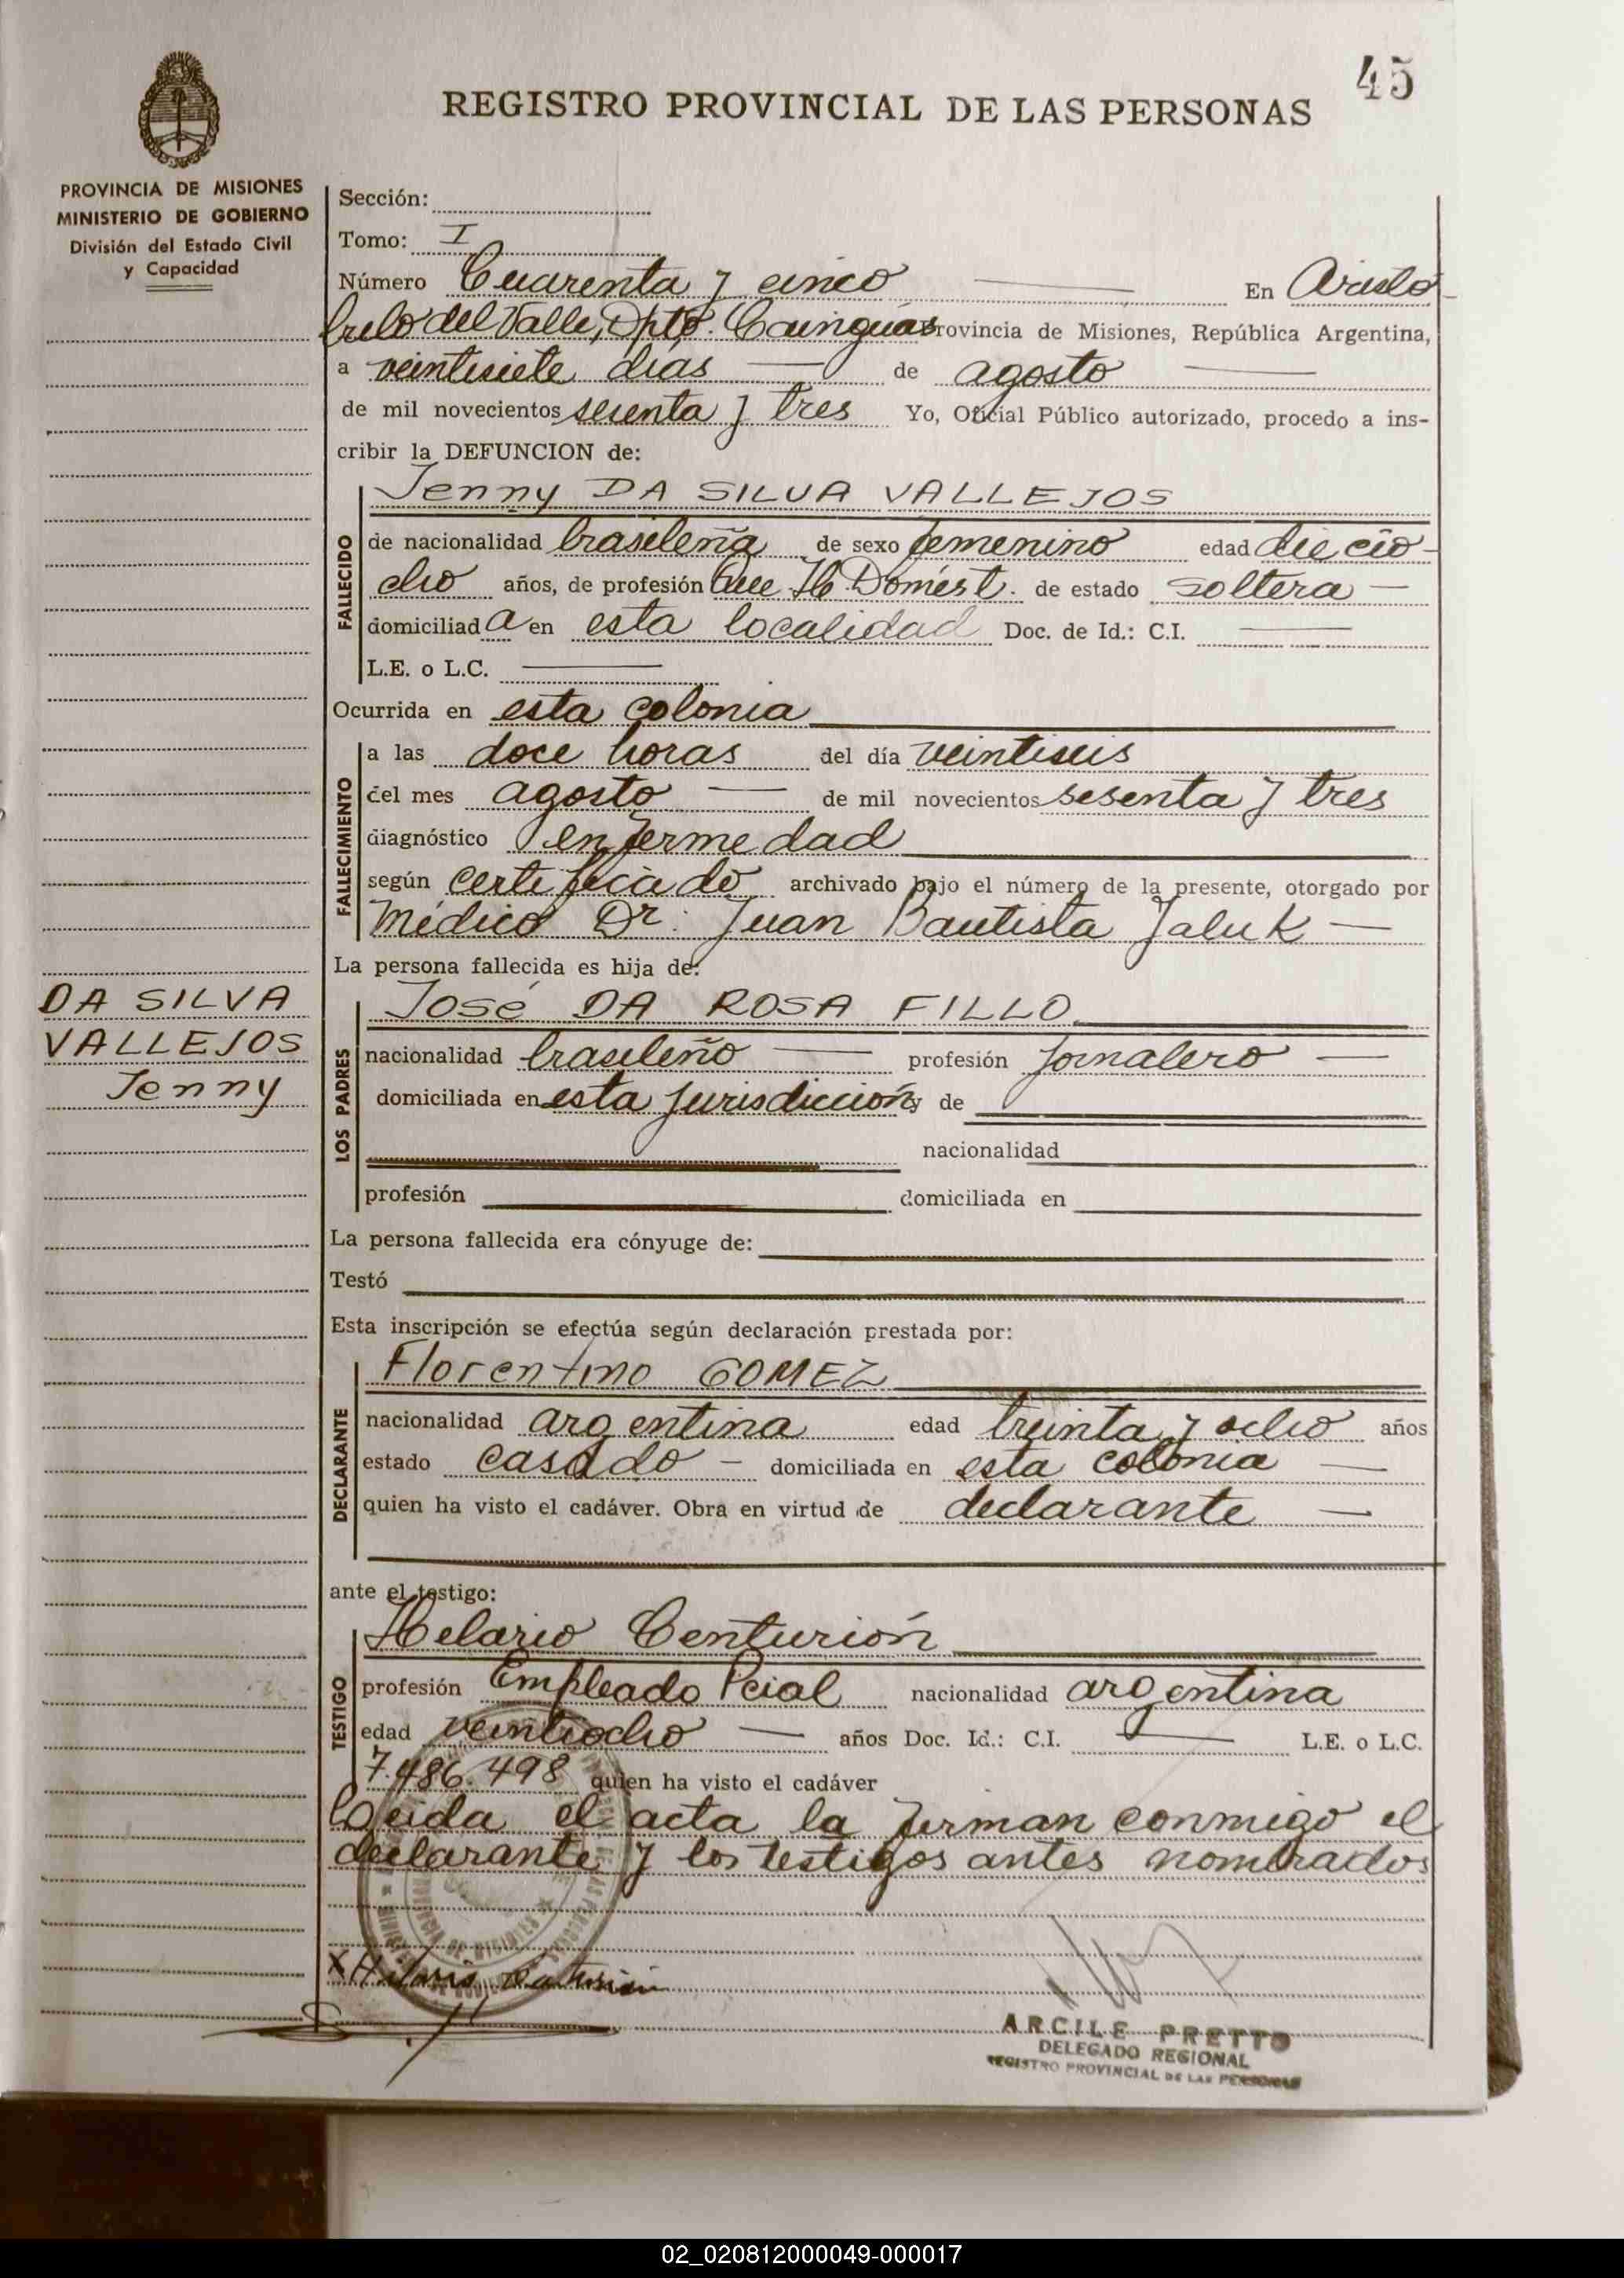 45
REGISTRO PROVINCIAL DE LAS PERSONAS
PROVINCIA DE MISIONES
MINISTERIO DE GOBIERNO
División del Estado Civil
y Capacidad
Sección:
Tomo: I
Número Cuarenta y cinco — En Aristó
bulo del Valle, Dpto. Cainguás Provincia de Misiones, República Argentina,
a veintisiete días — de agosto —
de mil novecientos sesenta y tres Yo, Oficial Público autorizado, procedo a ins-
cribir la DEFUNCION de:
Jenny DA SILVA VALLEJOS
FALLECIDO
de nacionalidad brasileña de sexo femenino edad diecio-
cho años, de profesión Domést. de estado soltera —
domiciliad a en esta localidad Doc. de Id.: C.I. —
L.E. o L.C. —
Ocurrida en esta colonia
FALLECIMIENTO
a las doce horas del día veintiseis
del mes agosto — de mil novecientos sesenta y tres
diagnóstico enfermedad
según certificado archivado bajo el número de la presente, otorgado por
médico Dr. Juan Bautista Jaluk —
La persona fallecida es hija de:
DA SILVA
VALLEJOS
Jenny
LOS PADRES
José DA ROSA FILLO
nacionalidad brasileño — profesión jornalero —
domiciliada en esta jurisdicción y de
nacionalidad
profesión domiciliada en
La persona fallecida era cónyuge de:
Testó
Esta inscripción se efectúa según declaración prestada por:
DECLARANTE
Florentino GOMEZ
nacionalidad argentina edad treinta y ocho años
estado casado — domiciliada en esta colonia —
quien ha visto el cadáver. Obra en virtud de declarante —
ante el testigo:
TESTIGO
Helario Centurión
profesión Empleado Pcial nacionalidad argentina
edad veintiocho — años Doc. Id.: C.I. — L.E. o L.C.
7.486.498 quien ha visto el cadáver
Leida el acta la firman conmigo el
declarante y los testigos antes nombrados
X Hilario Centurión
ARCILE PRETTO
DELEGADO REGIONAL
REGISTRO PROVINCIAL DE LAS PERSONAS
02_020812000049-000017